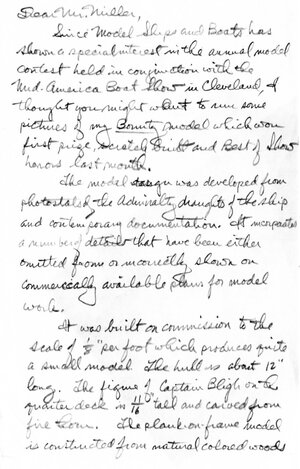 Dear Mr. Miller,
Since Model Ships and Boats has
shown a special interest in the annual model
contest held in conjunction with the
Mid-America Boat Show in Cleveland, I
thought you might want to run some
pictures of my Bounty model which won
first prize, scratch built and Best of Show
honors last month.
The model was developed from
photostats of the Admiralty draughts of the ship
and contemporary documentation. It incorporates
a number of details that have been either
omitted from or incorrectly shown on
commercially available plans for model
work.
It was built on commission to the
scale of 1/8" per foot which produces quite
a small model. The hull is about 12"
long. The figure of Captain Bligh on the
quarter deck is 11/16" tall and carved from
The plank on frame model
is constructed from natural colored woods